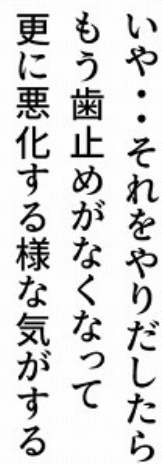 いや・・それをやりだしたら
もう歯止めがなくなって
更に悪化する様な気がする